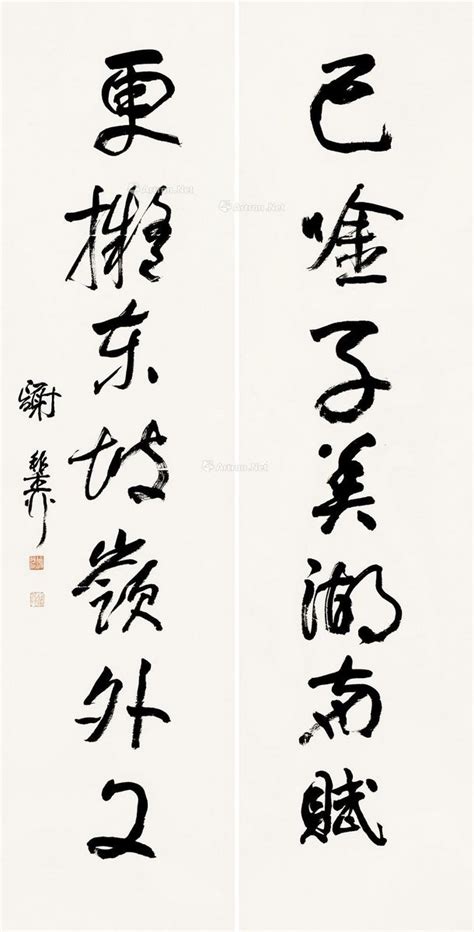 已唫子美湖南賦
更擬東坡嶺外文
謝稚柳
Artron.Net
Artron.Net
Artron.Net